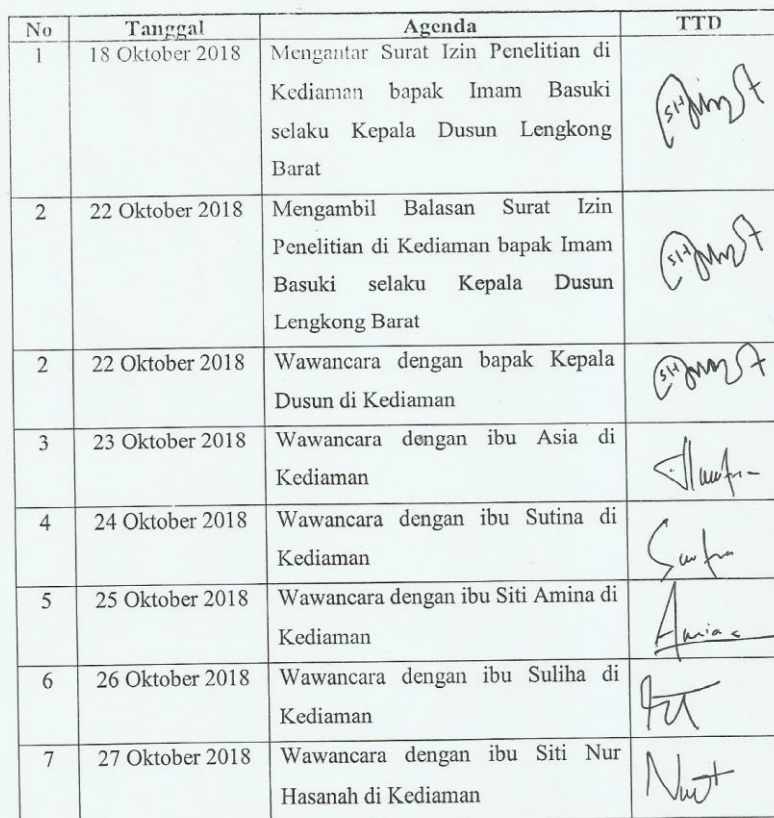 No Tanggal Agenda TTD
1 18 Oktober 2018 Mengantar Surat Izin Penelitian di
Kediaman bapak Imam Basuki
selaku Kepala Dusun Lengkong
Barat
2 22 Oktober 2018 Mengambil Balasan Surat Izin
Penelitian di Kediaman bapak Imam
Basuki selaku Kepala Dusun
Lengkong Barat
2 22 Oktober 2018 Wawancara dengan bapak Kepala
Dusun di Kediaman
3 23 Oktober 2018 Wawancara dengan ibu Asia di
Kediaman
4 24 Oktober 2018 Wawancara dengan ibu Sutina di
Kediaman
5 25 Oktober 2018 Wawancara dengan ibu Siti Amina di
Kediaman
6 26 Oktober 2018 Wawancara dengan ibu Suliha di
Kediaman
7 27 Oktober 2018 Wawancara dengan ibu Siti Nur
Hasanah di Kediaman